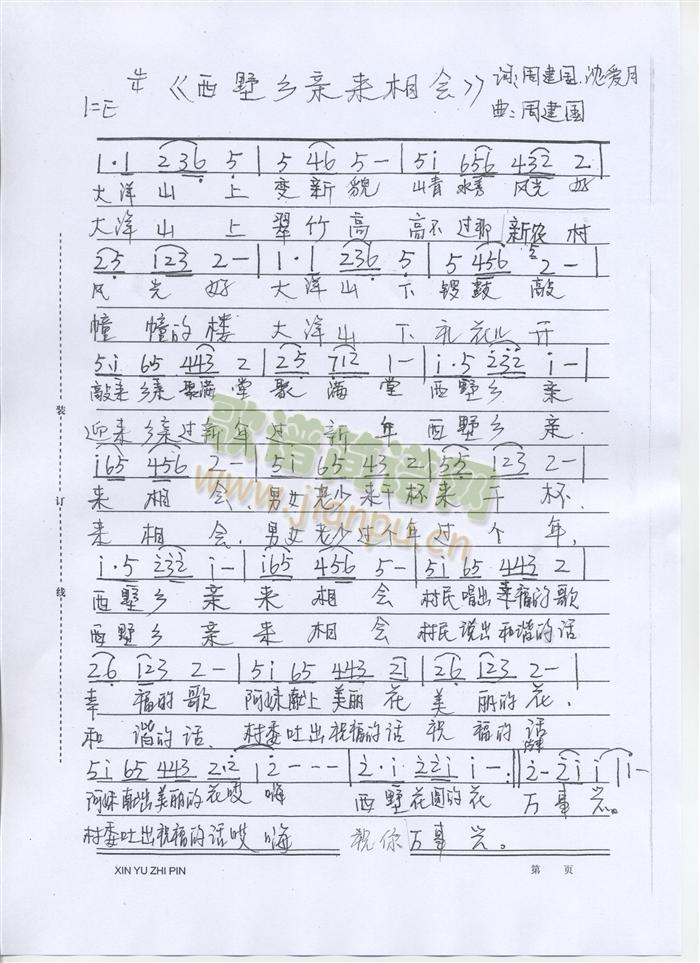 《西墅乡亲来相会》 词:周建国.沈爱月
1=E 4/4 曲:周建国
1·1 236 5 | 5 46 5 — | 5i 656 432 2 |
大洋山 上 变新貌 山青水秀 风光 好
大洋山 上 翠竹高 高不过那 新农 村
25 123 2 — | 1·1 236 5 | 5 456 2 — |
风 光 好 大洋山 下 锣鼓 敲
幢 幢的楼 大洋山 下 礼花儿 开
5i 65 443 2 | 25 712 1 — | i·5 232 i — |
敲来乡亲聚满堂 聚 满 堂 西墅乡 亲
迎来乡亲过新年过 新 年 西墅乡 亲.
i65 456 2 — | 5i 65 43 2 | 55 123 2 — |
来 相 会.男女老少来干杯来 干 杯.
来 相 会.男女老少过个年过 个 年,
i·5 232 i — | i65 456 5 — | 5i 65 443 2 |
西墅乡 亲 来 相 会 村民唱出幸福的歌
西墅乡 亲 来 相 会 村民说出和谐的话
26 123 2 — | 5i 65 443 21 | 26 123 2 — |
幸 福的歌 阿妹献上美丽 花 美 丽的花.
和 谐的话. 村委吐出祝福的话 祝 福的 话
5i 65 443 2·2 | 2 — — — | 2·i 22i i — :‖ 2— 2i i | i — |
阿妹献出美丽的花哎 嗨 西墅花园的花 万事 兴。
村委吐出祝福的话哎 嗨 祝你万事 兴。
装
订
线
XIN YU ZHI PIN 第 页
歌谱简谱网
www.jianpu.cn